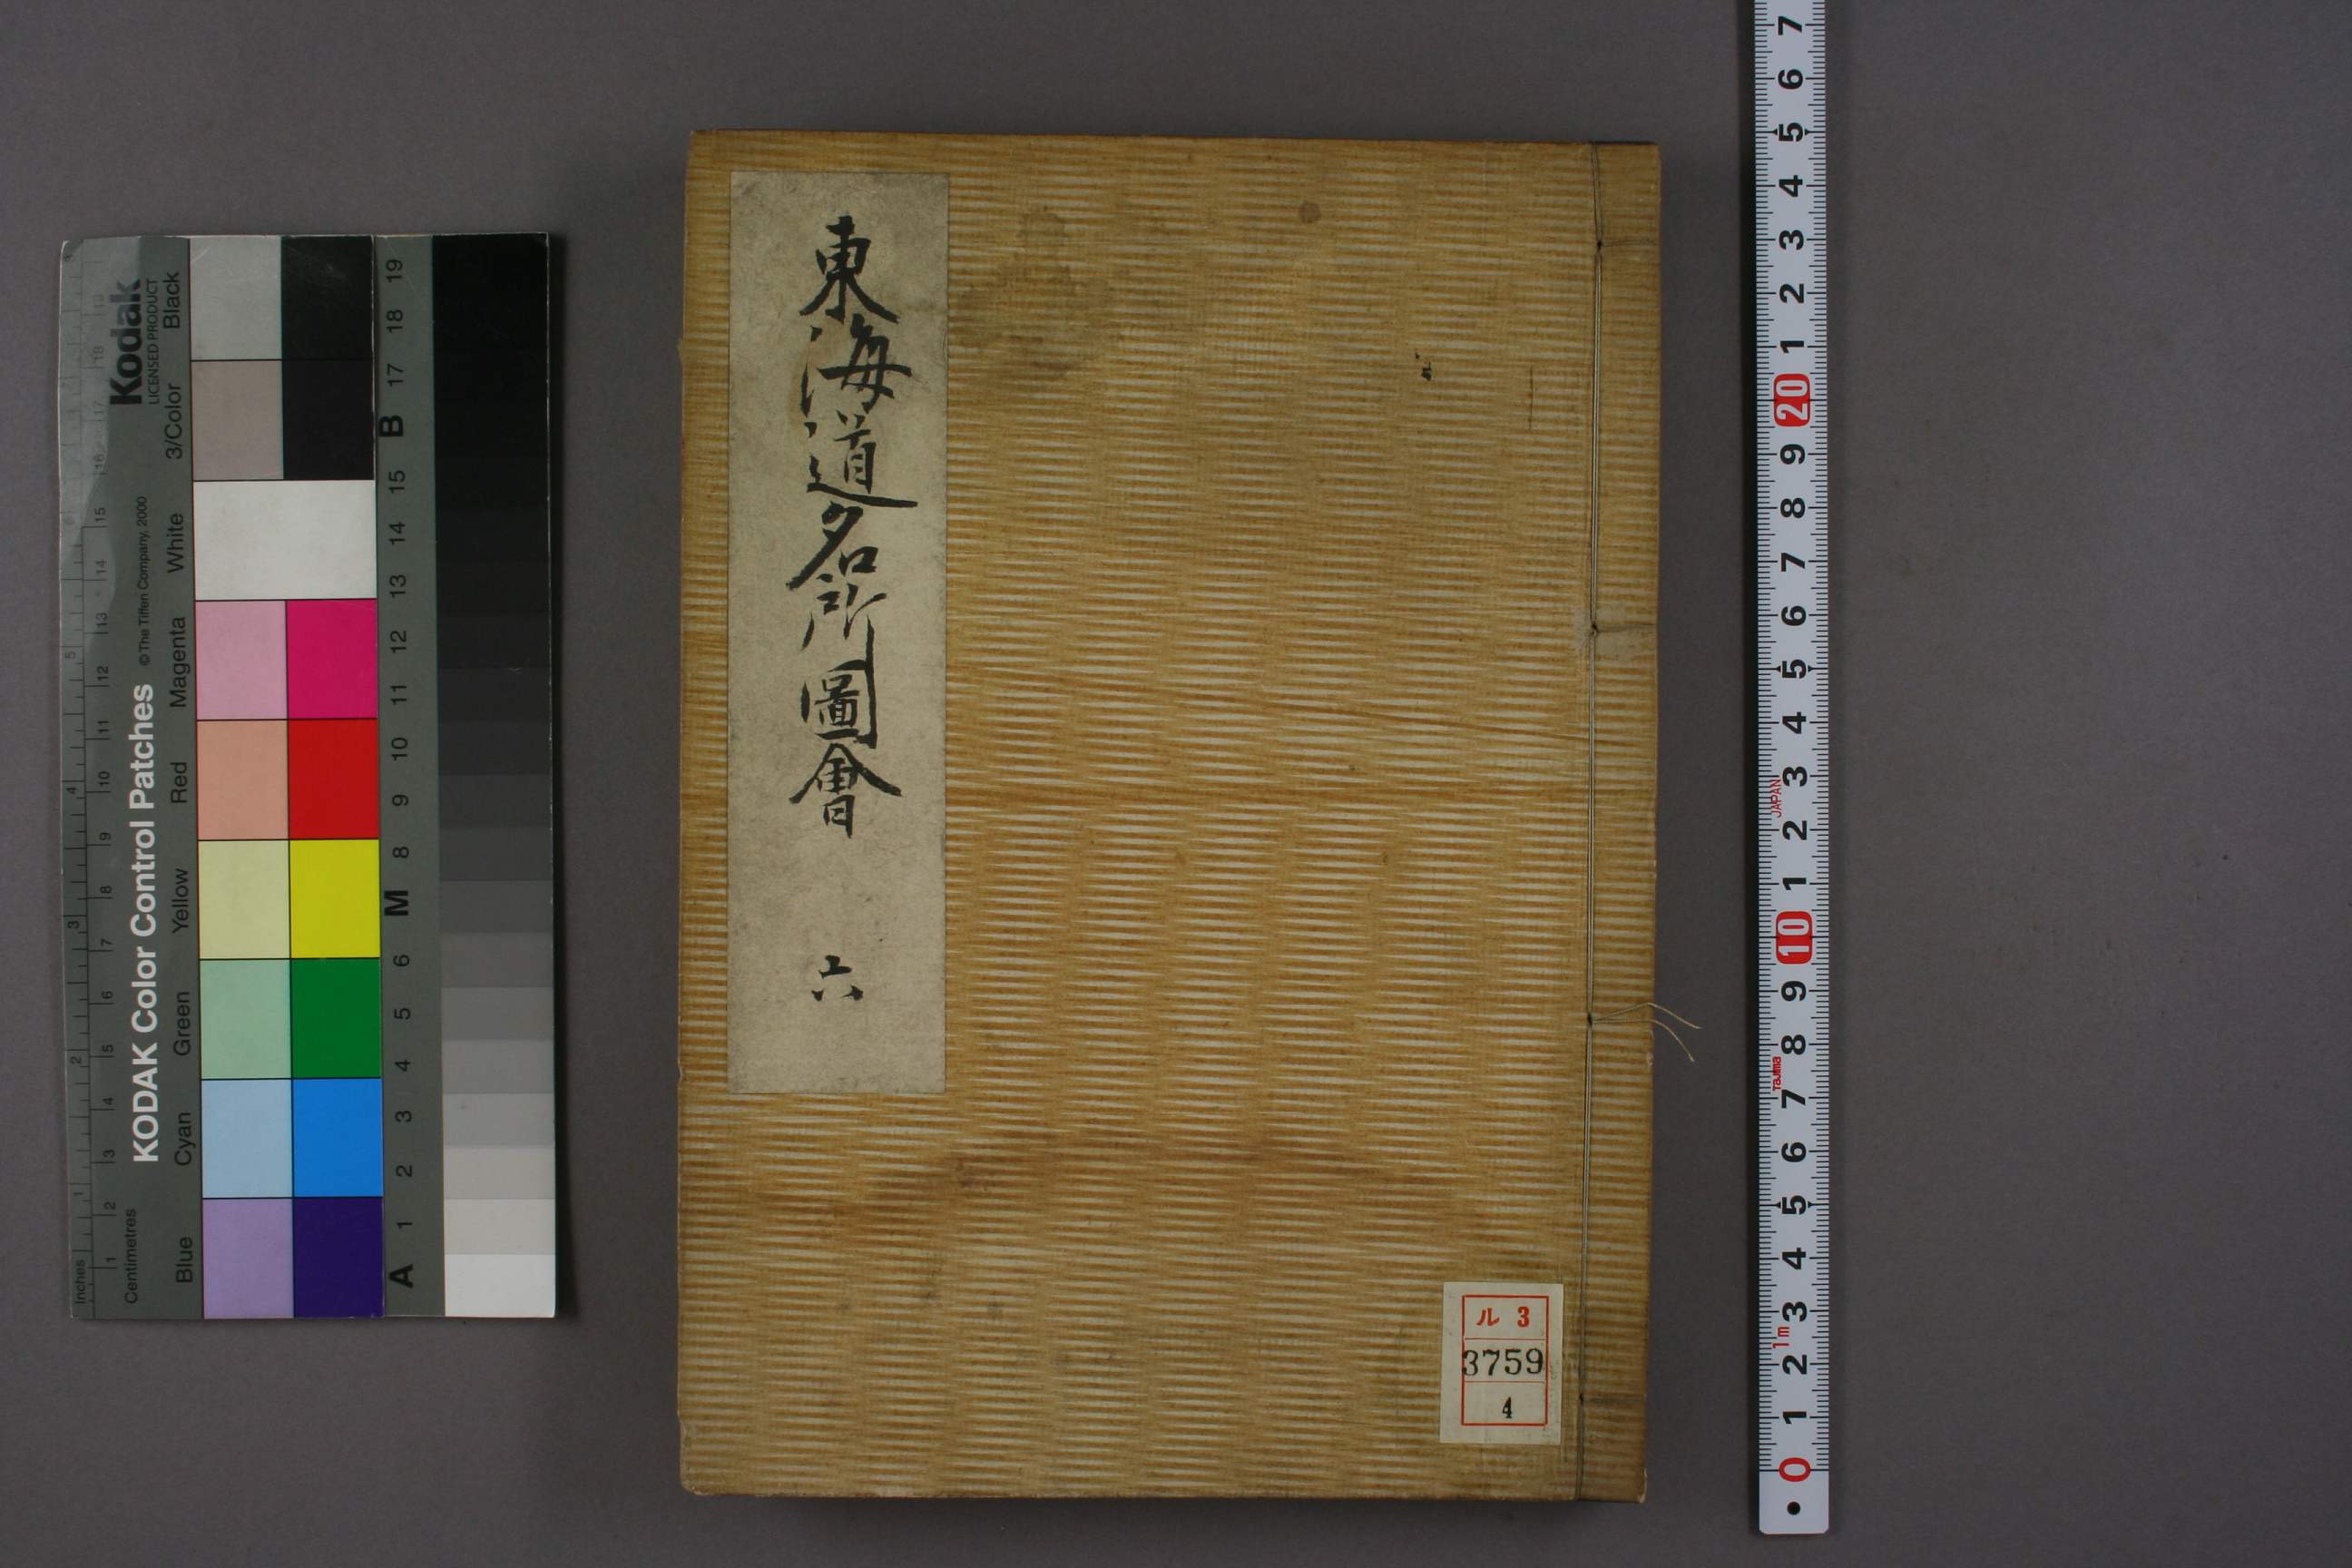 東海道名所圖會
六
ル 3
3759
4
Kodak
LICENSED PRODUCT
KODAK Color Control Patches
© The Tiffen Company, 2000
Blue Cyan Green Yellow Red Magenta White 3/Color Black
Inches
Centimetres
A 1 2 3 4 5 6 M 8 9 10 11 12 13 14 15 B 17 18 19
0 1 2 3 4 5 6 7 8 9 10 1 2 3 4 5 6 7 8 9 20 1 2 3 4 5 6 7
1m
Tajima
JAPAN